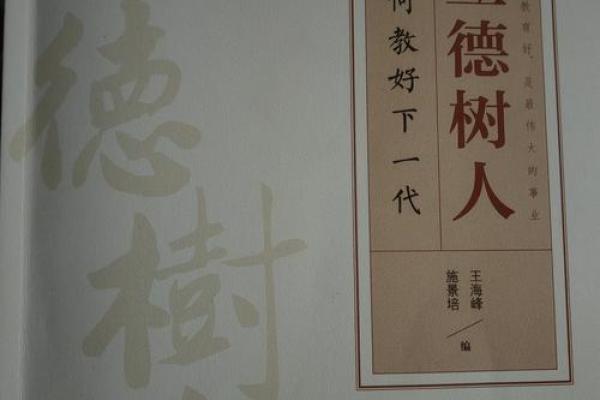 教育好，是最伟大的事业
德树人
何教好下一代
王海峰
施景培
编
德樹